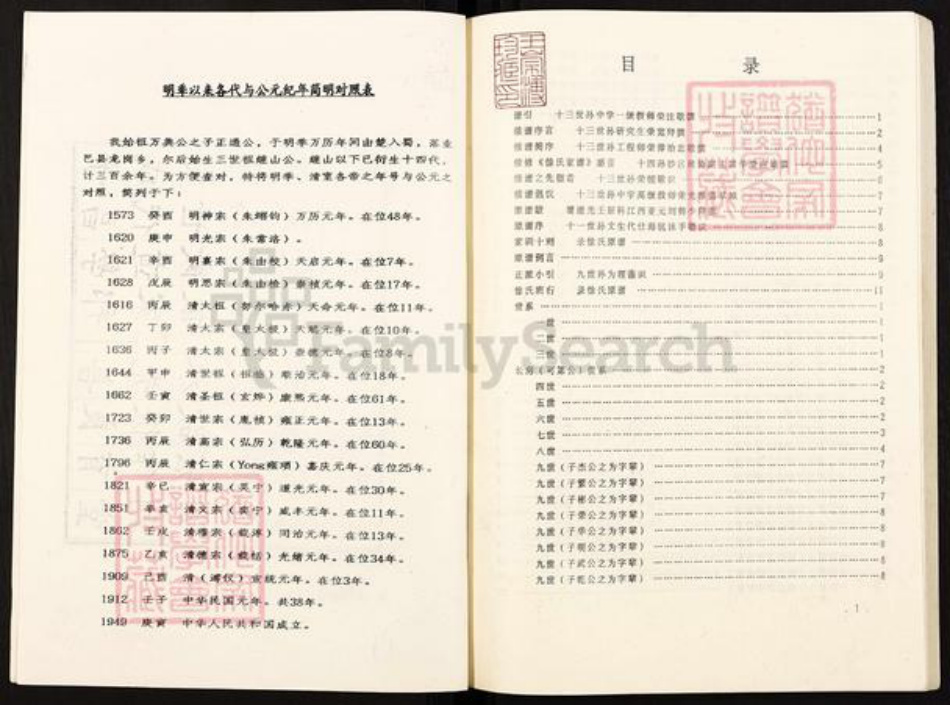 明季以来各代与公元纪年简明对照表
我始祖万奥公之子正通公,于明季万历年间由楚入蜀,落业
巴县龙岗乡,尔后始生三世祖继山公。继山以下已衍生十四代,
计三百余年。为方便查对,特将明季、清室各帝之年号与公元之
对照,简列于下:
1573 癸酉 明神宗(朱翊钧)万历元年。在位48年。
1620 庚申 明光宗(朱常洛)。
1621 辛酉 明熹宗(朱由校)天启元年。在位7年。
1628 戊辰 明思宗(朱由检)崇祯元年。在位17年。
1616 丙辰 清太祖(努尔哈赤)天命元年。在位11年。
1627 丁卯 清太宗(皇太极)天聪元年。在位10年。
1636 丙子 清太宗(皇太极)崇德元年。在位8年。
1644 甲申 清世祖(福临)顺治元年。在位18年。
1662 壬寅 清圣祖(玄烨)康熙元年。在位61年。
1723 癸卯 清世宗(胤祯)雍正元年。在位13年。
1736 丙辰 清高宗(弘历)乾隆元年。在位60年。
1796 丙辰 清仁宗(Yong雍项)嘉庆元年。在位25年。
1821 辛巳 清宣宗(旻宁)道光元年。在位30年。
1851 辛亥 清文宗(奕宁)咸丰元年。在位11年。
1862 壬戌 清穆宗(载淳)同治元年。在位13年。
1875 乙亥 清德宗(载恬)光绪元年。在位34年。
1909 己酉 清(溥仪)宣统元年。在位3年。
1912 壬子 中华民国元年。共38年。
1949 庚寅 中华人民共和国成立。
目 录
谱引 十三世孙中学一级教师荣注敬撰 1
续谱序言 十三世孙研究生荣宽拜撰 2
续谱简序 十三世孙工程师荣 4
续修《徐氏家谱》 5
6
7
续谱跋 7
续谱序 十一世孙文生代仕 8
家训十则 录徐氏原谱 8
原谱例言 9
正派小引 九世孙为 9
徐氏班行 录徐氏原谱 11
世系 1
一世 1
二世 1
三世 1
长房(可第公)世系 2
四世 2
五世 2
六世 2
七世 3
八世 4
九世(子杰公之为字辈) 7
九世(子繁公之为字辈) 7
九世(子彬公之为字辈) 7
九世(子荣公之为字辈) 8
九世(子华公之为字辈) 8
九世(子朝公之为字辈) 8
九世(子武公之为字辈) 8
九世(子乾公之为字辈) 8
. 1
FamilySearch